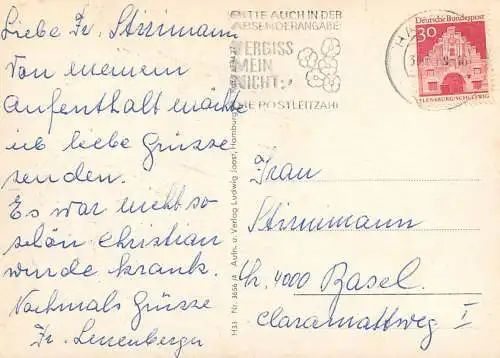 Liebe Fr. Stirnimann
Von meinem
Aufenthalt möchte
ich liebe Grüsse
senden.
Es war nicht so
schön Christian
wurde krank.
Nochmals Grüsse
Fr.
BITTE AUCH IN DER
ABSENDERANGABE
VERGISS
MEIN
NICHT
DIE POSTLEITZAHL
Deutsche Bundespost
30
FLENSBURG/SCHLESWIG
H33 Nr. 3656 /4 Aufn. u. Verlag Ludwig Joost, Hamburg
Frau
Stirnimann
Ch. 4000 Basel
Claramattweg I